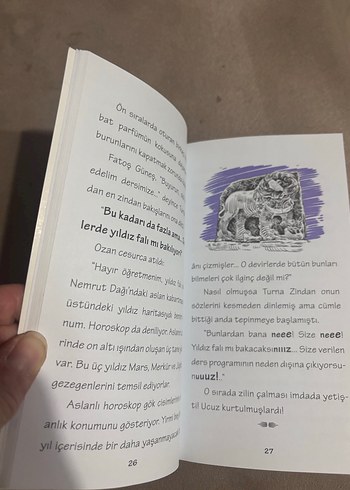 Ön sıralarda oturan
bat parfümün kokusuna
burunlarını kapatmak zorunda
Fatoş Güneş, "Buyurun,
edelim dersimize..." deyince
dan en zindan bakışlarını ona
"Bu kadarı da fazla ama...
lerde yıldız falı mı bakılıyor?
Ozan cesurca atıldı:
"Hayır öğretmenim, yıldız falı
Nemrut Dağı'ndaki aslan kabartma
üstündeki yıldız haritasıyla
num. Horoskop da deniliyor. Aslanın
rinde on altı ışından oluşan üç tane yıldız
var. Bu üç yıldız Mars, Merkür ve Jüp
gezegenlerini temsil ediyorlar.
Aslanlı horoskop gök cisimlerinin
anlık konumunu gösteriyor. Yirmi beş
yıl içerisinde bir daha yaşanmayacak
26
ânı çizmişler... O devirlerde bütün bunları
bilmeleri çok ilginç değil mi?"
Nasıl olmuşsa Turna Zindan onun
sözlerini kesmeden dinlemiş ama cümle
bittiği anda tepinmeye başlamıştı.
"Bunlardan bana neee! Size neee!
Yıldız falı mı bakacaksınıııız... Size verilen
ders programının neden dışına çıkıyorsu-
nuuuz!.."
O sırada zilin çalması imdada yetiş-
ti! Ucuz kurtulmuşlardı!
27